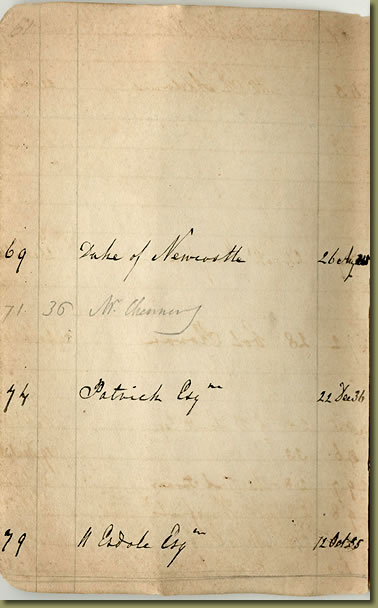 69 Duke of Newcastle 26 Aug
71 36 Mr.
74 Patrick Esqre 22 Dec 36
79 Esdale Esqre 12 Oct 35